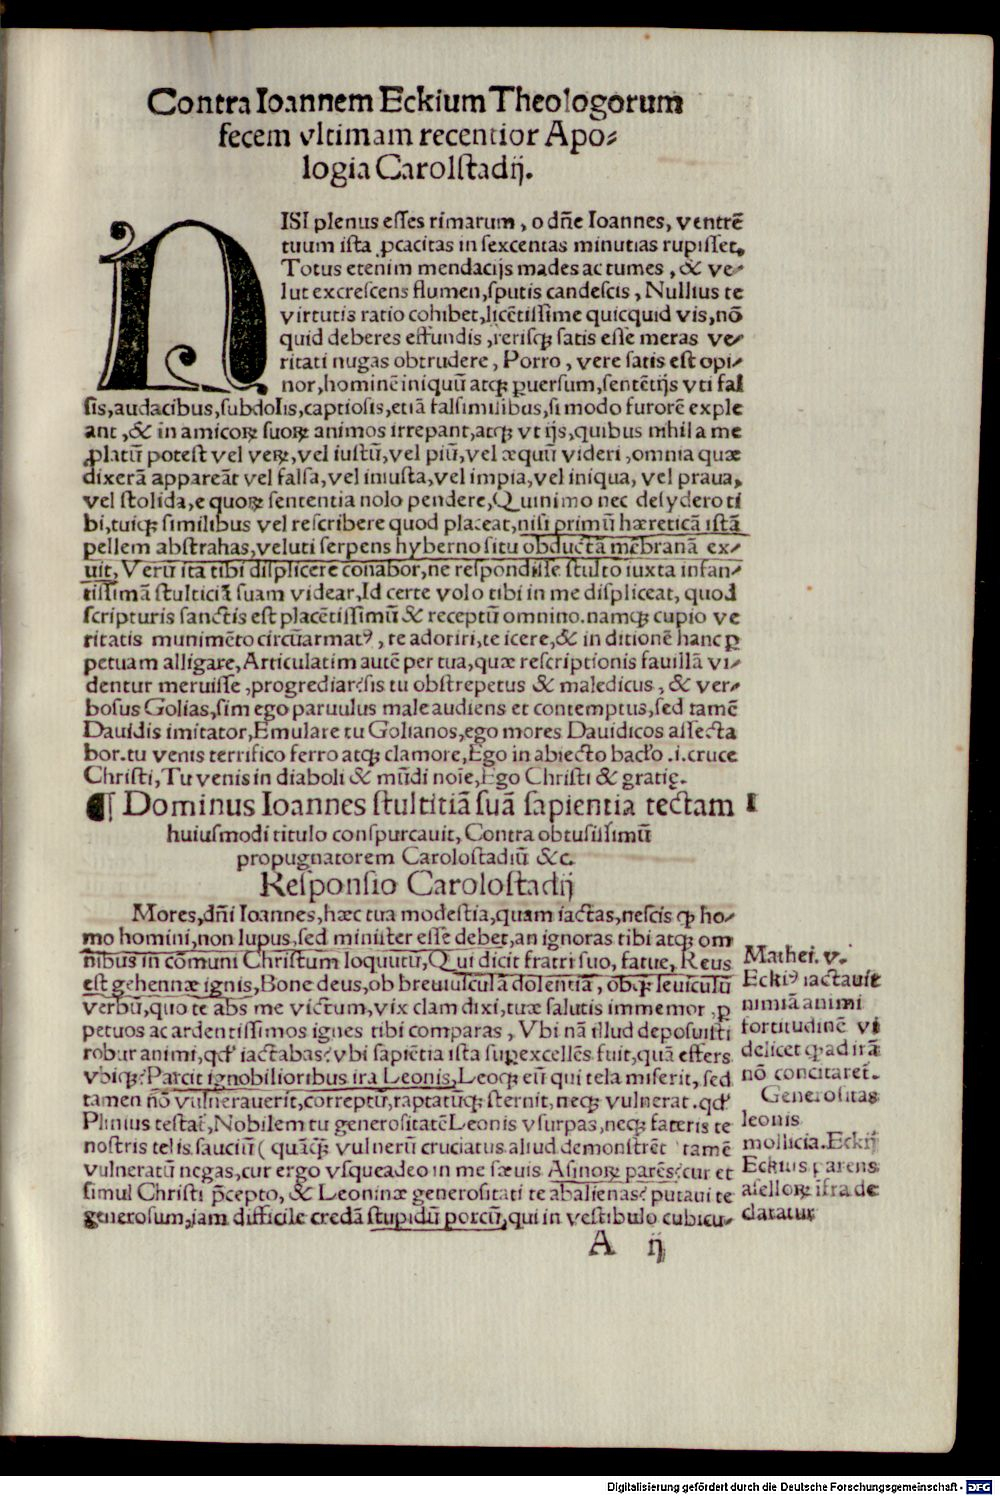 Contra Ioannem Eckium Theologorum
fecem vltimam recentior Apo⸗
logia Carolſtadij.
NISI plenus eſſes rimarum, o dñe Ioannes, ventrē
tuum iſta ꝓcacitas in ſexcentas minutias rupiſſet,
Totus etenim mendacijs mades ac tumes, & ve⸗
lut excreſcens flumen, ſputis candeſcis, Nullius te
virtutis ratio cohibet, licētiſſime quicquid vis, nō
quid deberes effundis, rerisqꝫ ſatis eſſe meras ve⸗
ritati nugas obtrudere, Porro, vere ſatis eſt opi⸗
nor, hominē iniquū atqꝫ ꝑuerſum, ſentētijs vti fal
ſis, audacibus, ſubdolis, captioſis, etiā falſimilibus, ſi modo furorē exple
ant, & in amicoꝝ ſuoꝝ animos irrepant, atqꝫ vt ijs, quibus nihil a me
ꝓlatū poteſt vel veꝝ, vel iuſtū, vel piū, vel æquū videri, omnia quæ
dixerā appareāt vel falſa, vel iniuſta, vel impia, vel iniqua, vel praua,
vel ſtolida, e quoꝝ ſententia nolo pendere, Quinimo nec deſydero ti
bi, tuiqꝫ ſimilibus vel reſcribere quod placeat, niſi primū hæreticā iſtā
pellem abſtrahas, veluti ſerpens hyberno ſitu obductā mēbranā ex⸗
uit, Verū ita tibi diſplicere conabor, ne reſpondiſſe ſtulto iuxta infan⸗
tiſſimā ſtulticiā ſuam videar, Id certe volo tibi in me diſpliceat, quod
ſcripturis ſanctis eſt placētiſſimū & receptū omnino. namqꝫ cupio ve
ritatis munimēto circūarmatꝰ, te adoriri, te icere, & in ditionē hanc ꝑ
petuam alligare, Articulatim autē per tua, quæ reſcriptionis fauillā vi⸗
dentur meruiſſe, progrediar: ſis tu obſtrepetus & maledicus, & ver⸗
boſus Golias, ſim ego paruulus male audiens et contemptus, ſed tamē
Dauidis imitator, Emulare tu Golianos, ego mores Dauidicos affecta
bor. tu venis terrifico ferro atqꝫ clamore, Ego in abiecto baclo .i. cruce
Chriſti, Tu venis in diaboli & mūdi noīe, Ego Chriſti & gratię.
¶ Dominus Ioannes ſtultitiā ſuā ſapientia tectam I
huiusmodi titulo conſpurcauit, Contra obtuſiſſimū
propugnatorem Caroloſtadiū &c.
Reſponſio Caroloſtadij
Mores, dñi Ioannes, hæc tua modeſtia, quam iactas, neſcis ꝙ ho⸗
mo homini, non lupus, ſed miniſter eſſe debet, an ignoras tibi atqꝫ om
nibus in cōmuni Chriſtum loquutū, Qui dicit fratri ſuo, fatue, Reus
eſt gehennæ ignis, Bone deus, ob breuiuſculā dolentiā, obqꝫ leuiculū
verbū, quo te abs me victum, vix clam dixi, tuæ ſalutis immemor, ꝑ
petuos ac ardentiſſimos ignes tibi comparas, Vbi nā illud depoſuiſti
robur animi, qd' iactabas? vbi ſapiētia iſta ſuꝑexcellēs fuit, quā effers
vbiqꝫ? Parcit ignobilioribus ira Leonis, Leoqꝫ eū qui tela miſerit, ſed
tamen nō vulnerauerit, correptū, raptatūqꝫ ſternit, neqꝫ vulnerat. qd'
Plinius teſtat, Nobilem tu generoſitatē Leonis vſurpas, neqꝫ fateris te
noſtris telis ſauciū ( quāqꝫ vulnerū cruciatus aliud demonſtrēt tamē
vulneratū negas, cur ergo vſqueadeo in me ſæuis Aſinoꝝ parēs? cur et
ſimul Chriſti p̄cepto, & Leoninæ generoſitati te abalienas? putaui te
generoſum, iam difficile credā ſtupidū porcū, qui in veſtibulo cubicu⸗
A ij
Mathei. v.
Eckiꝰ iactauit
nimiā animi
fortitudinē vi
delicet ꝙ ad irā
nō concitaret.
Generoſitas
leonis
mollicia. Eckij
Eckius parens
aſelloꝝ īfra de
claratur
Digitalisierung gefördert durch die Deutsche Forschungsgemeinschaft - DFG